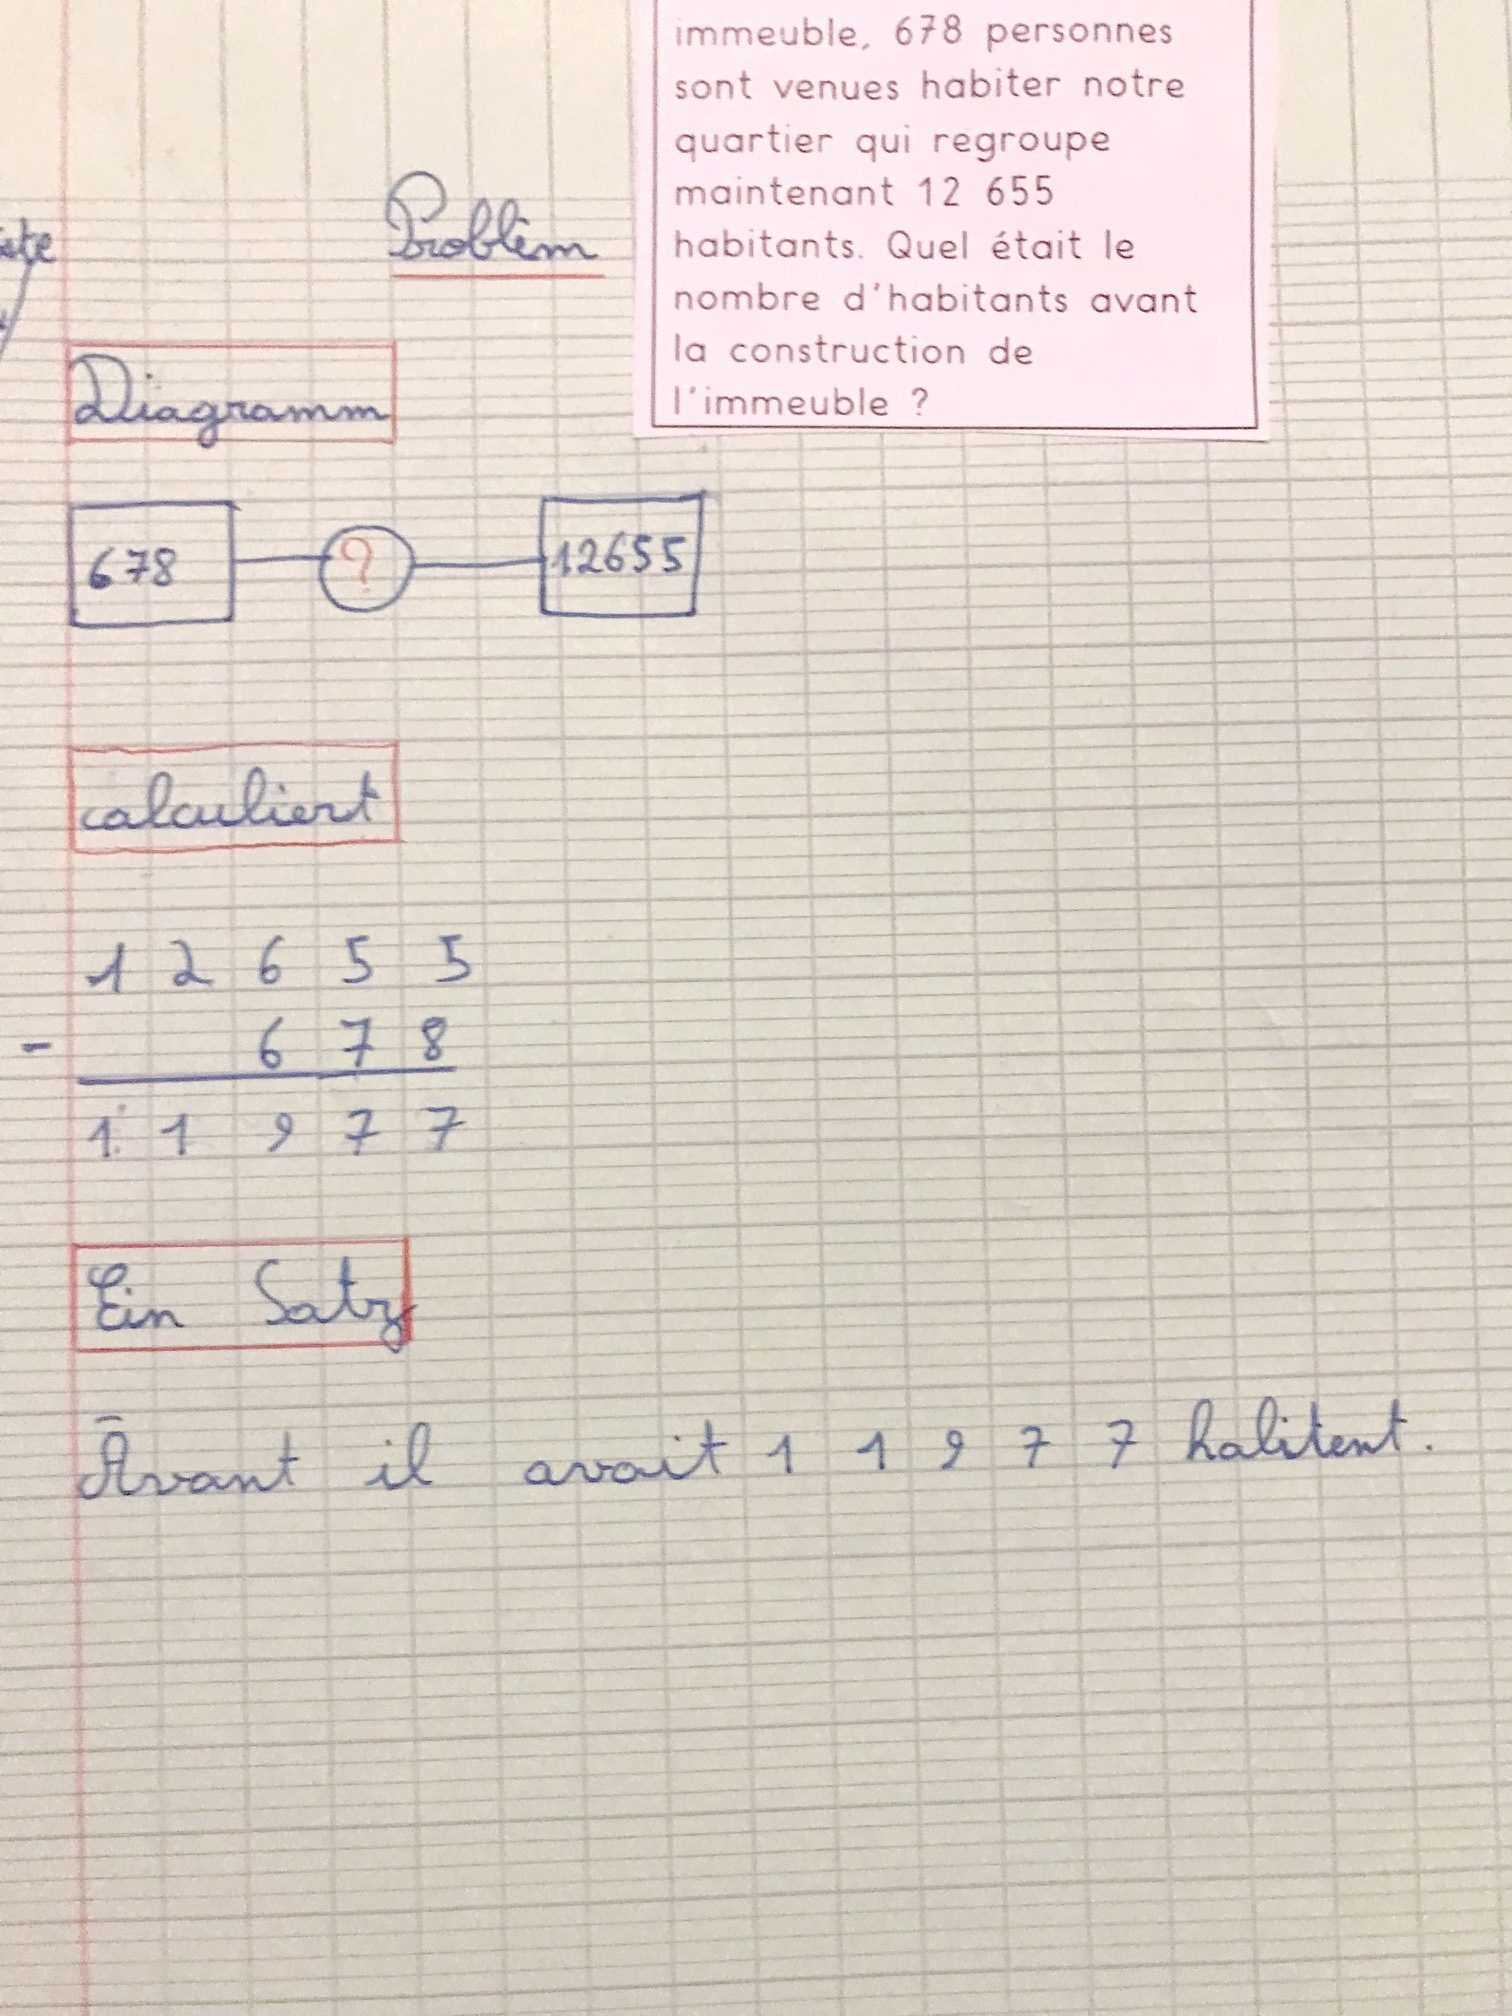 immeuble, 678 personnes
sont venues habiter notre
quartier qui regroupe
maintenant 12 655
habitants. Quel était le
nombre d'habitants avant
la construction de
l'immeuble ?
Problem
Diagramm
678 ? 12655
calculiert
1 2 6 5 5
- 6 7 8
1 1 9 7 7
Ein Satz
Avant il avait 1 1 9 7 7 habitent.